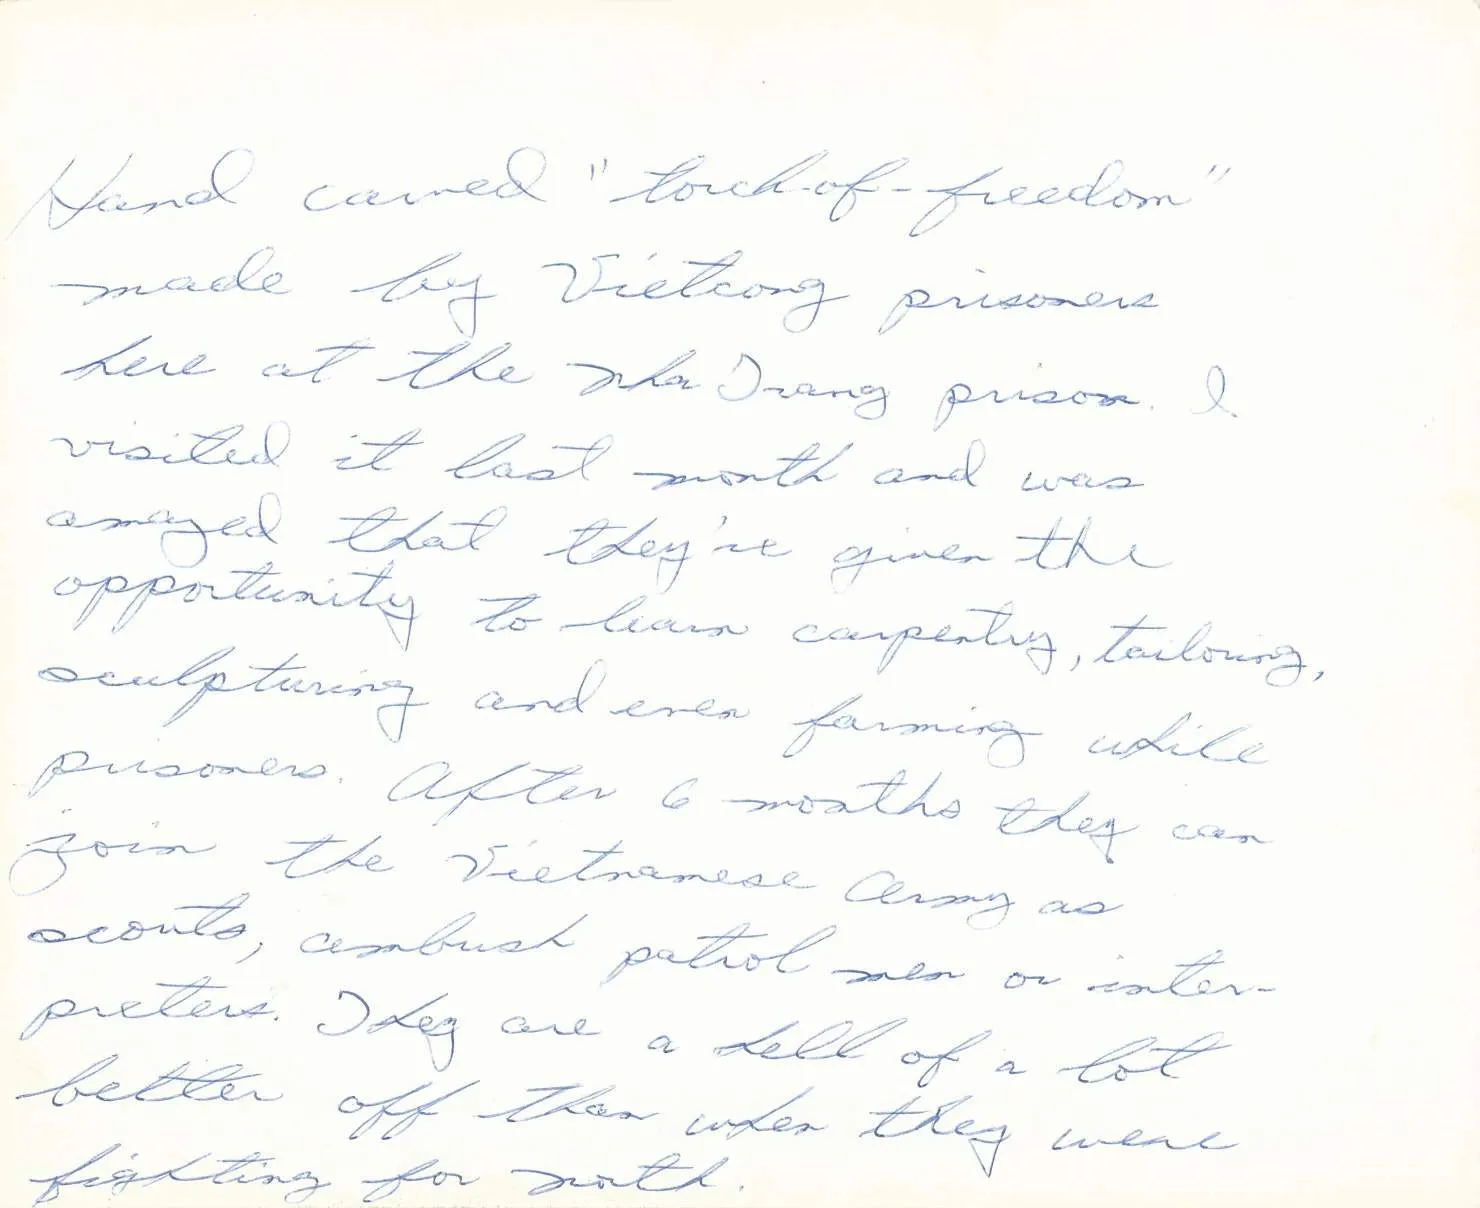 Hand carved "torch-of-freedom"
made by Vietcong prisoners
here at the Nha Trang prison. I
visited it last month and was
amazed that they're given the
opportunity to learn carpentry, tailoring,
sculpturing and even farming while
prisoners. After 6 months they can
join the Vietnamese Army as
scouts, ambush patrol men or inter-
preters. They are a hell of a lot
better off than when they were
fighting for north.